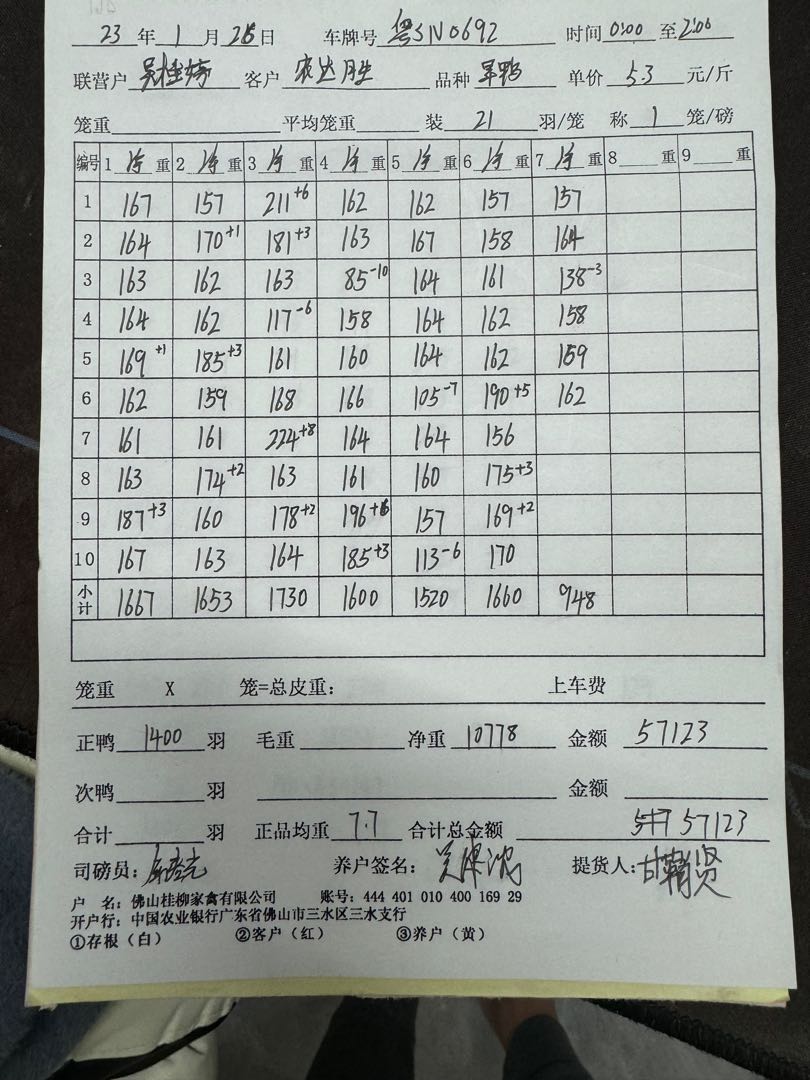 23 年 1 月 28 日 车牌号 粤SN0692 时间 0:00 至 2:00
联营户 客户 农达胜 品种 旱鸭 单价 5.3 元/斤
笼重 平均笼重 装 21 羽/笼 称 1 笼/磅
编号 1 净 重 2 净 重 3 净 重 4 净 重 5 净 重 6 净 重 7 净 重 8 重 9 重
1 167 157 211+6 162 162 157 157
2 164 170+1 181+3 163 167 158 164
3 163 162 163 85-10 164 161 138-3
4 164 162 117-6 158 164 162 158
5 169+1 185+3 161 160 164 162 159
6 162 159 168 166 105-7 190+5 162
7 161 161 224+8 164 164 156
8 163 174+2 163 161 160 175+3
9 187+3 160 178+2 196 157 169+2
10 167 163 164 185+3 113-6 170
小计 1667 1653 1730 1600 1520 1660 948
笼重 X 笼=总皮重: 上车费
正鸭 1400 羽 毛重 净重 10778 金额 57123
次鸭 羽 金额
合计 羽 正品均重 7.7 合计总金额 57123
司磅员: 养户签名: 提货人:
户 名: 佛山桂柳家禽有限公司 账号: 444 401 010 400 169 29
开户行: 中国农业银行广东省佛山市三水区三水支行
①存根（白） ②客户（红） ③养户（黄）